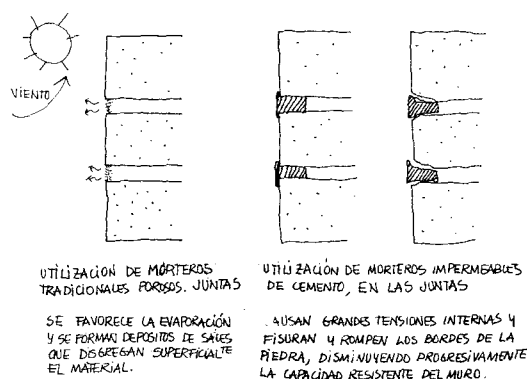 VIENTO
UTILIZACIÓN DE MORTEROS
TRADICIONALES POROSOS. JUNTAS
SE FAVORECE LA EVAPORACIÓN
Y SE FORMAN DEPOSITOS DE SALES
QUE DISGREGAN SUPERFICIALTE
EL MATERIAL.
UTILIZACIÓN DE MORTEROS IMPERMEABLES
DE CEMENTO, EN LAS JUNTAS
.AUSAN GRANDES TENSIONES INTERNAS Y
FISURAN Y ROMPEN LOS BORDES DE LA
PIEDRA, DISMINUYENDO PROGRESIVAMENTE
LA CAPACIDAD RESISTENTE DEL MURO.